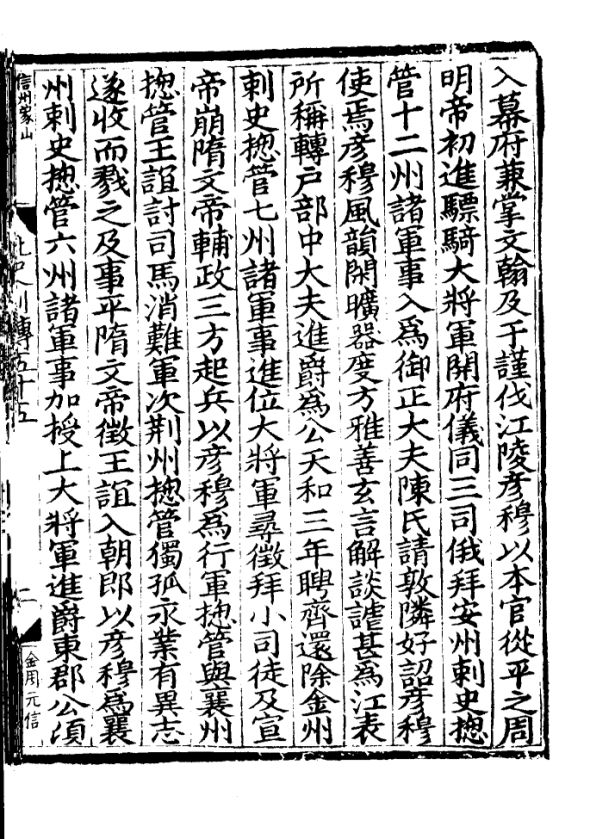 入幕府兼掌文翰及于謹伐江陵彦穆以本官從平之周
明帝初進驃騎大將軍開府儀同三司俄拜安州刺史揔
管十二州諸軍事入爲御正大夫陳氏請敦隣好詔彦穆
使焉彦穆風韻閑曠器度方雅善玄言解談謔甚爲江表
所稱轉户部中大夫進爵爲公天和三年聘齊還除金州
刺史揔管七州諸軍事進位大將軍尋徵拜小司徒及宣
帝崩隋文帝輔政三方起兵以彦穆爲行軍揔管與襄州
揔管王誼討司馬消難軍次荆州揔管獨孤永業有異志
遂收而戮之及事平隋文帝徵王誼入朝即以彦穆爲襄
州刺史揔管六州諸軍事加授上大將軍進爵東郡公須
信州象山
北史列傳五十五
二
金用元信